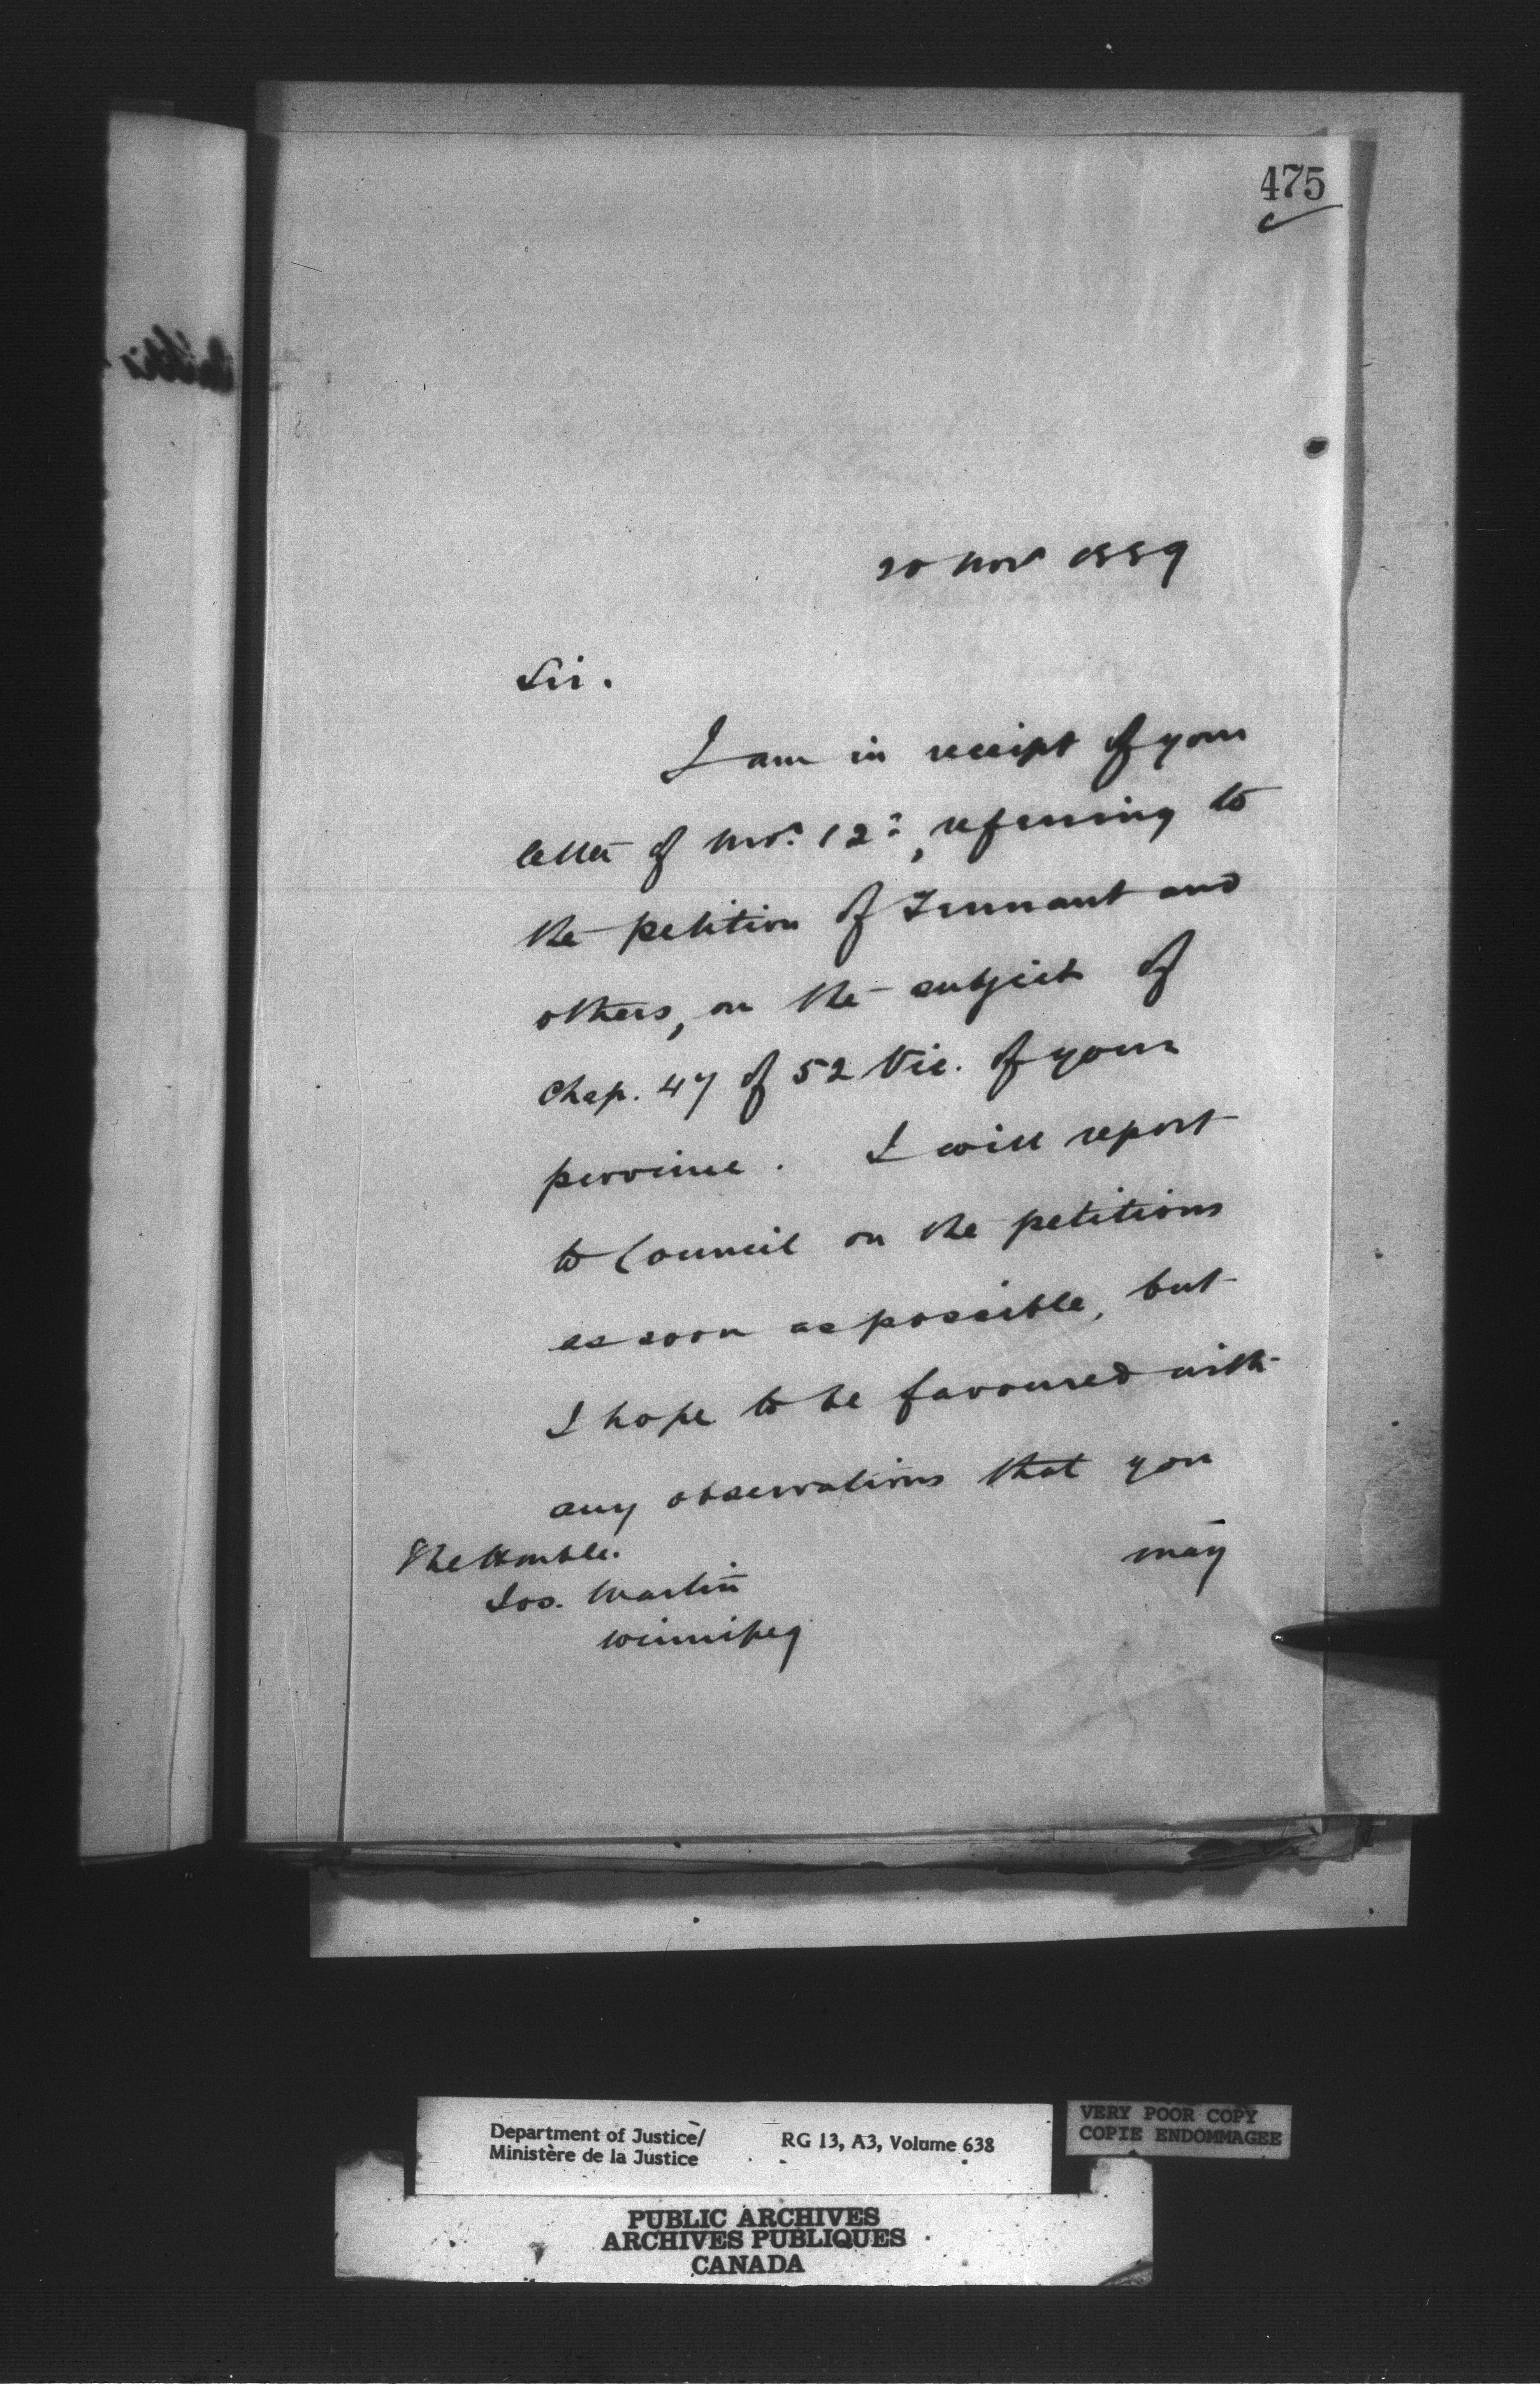 475
20 Nov 1889
Sir.
I am in receipt of your
letter of 12, referring to
the petition of Tennant and
others, on the subject of
Chap. 47 of 52 Vic. of your
province. I will report
to Council on the petitions
as soon as possible, but
I hope to be favoured with
any observations that you
may
The Honble.
Jos. Martin
Winnipeg
Department of Justice/
Ministère de la Justice
RG 13, A3, Volume 638
VERY POOR COPY
COPIE ENDOMMAGEE
PUBLIC ARCHIVES
ARCHIVES PUBLIQUES
CANADA